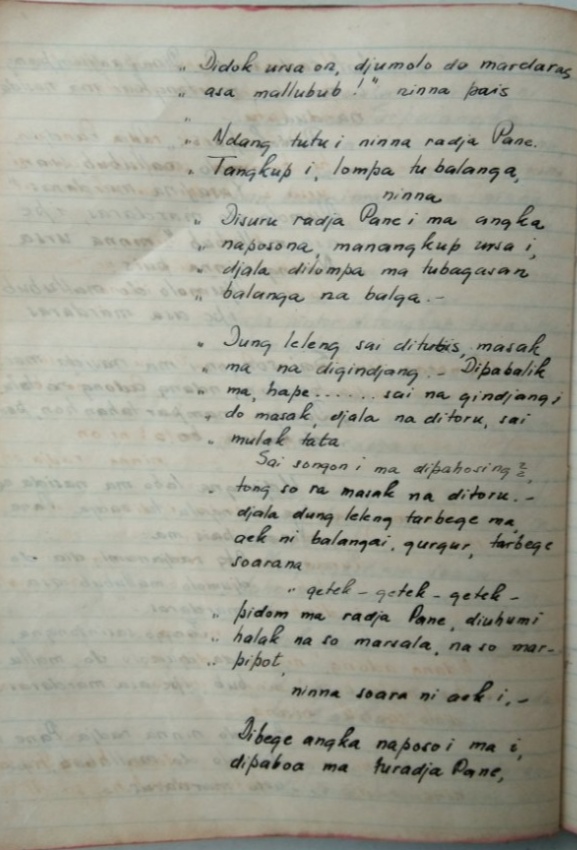 „ Didok ursa on, djumolo do mardaras
„ asa mallubub!" ninna pais
„
„ Ndang tutu i ninna radja Pane.
„ Tangkup i, lompa tu balanga,
ninna
„ Disuru radja Pane i ma angka
„ naposona, manangkup ursa i,
„ djala dilompa ma tubagasan
„ balanga na balga.-
„ Dung leleng sai ditutbis, masak
„ ma na digindjang.- Dipabalik
„ ma, hape....... sai na gindjang i
„ do masak, djala na ditoru, sai
„ mulak tata
Sai songon i ma dipahosing2,
„ tong so ra masak na ditoru.-
djala dung leleng tarbege ma,
aek ni balangai, gurgur, tarbege
soarana
„ getek - getek - getek -
„ pidom ma radja Pane, diuhumi
„ halak na so marsala, na so mar-
„ pipot,
ninna soara ni aek i,-
Dibege angka naposo i ma i,
dipaboa ma turadja Pane,